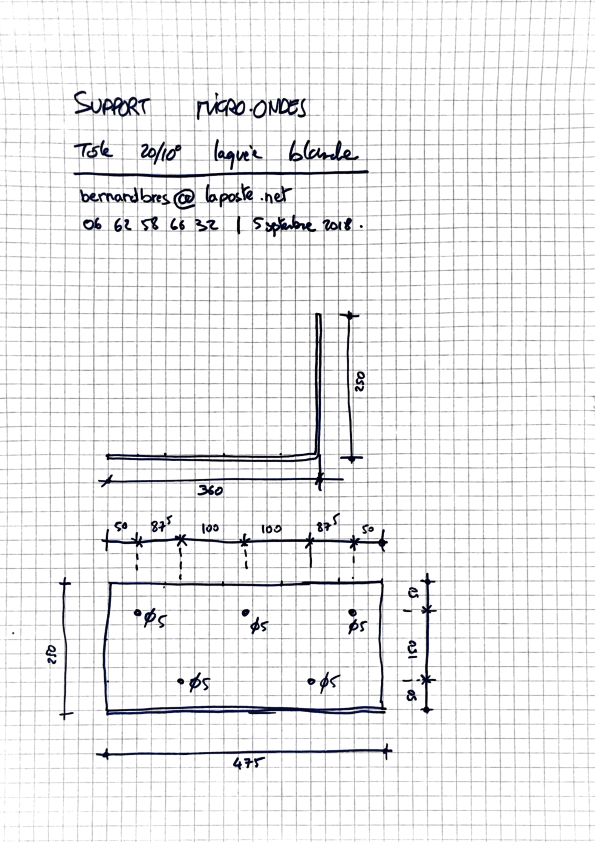 SUPPORT MICRO-ONDES
Tôle 20/10° laquée blanche
bernardbres@laposte.net
06 62 58 66 32 | 5 septembre 2018.
250
360
50 87⁵ 100 100 87⁵ 50
50
ϕ5 ϕ5 ϕ5
250
150
ϕ5 ϕ5
50
475